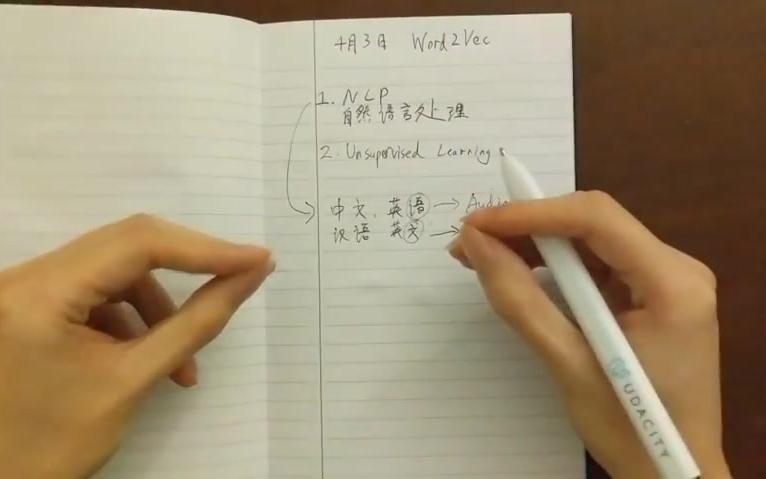 4月3日 Word2Vec
1. NLP
自然语言处理
2. Unsupervised Learning
中文、英语 → Audio
汉语 英文 →
UDACITY